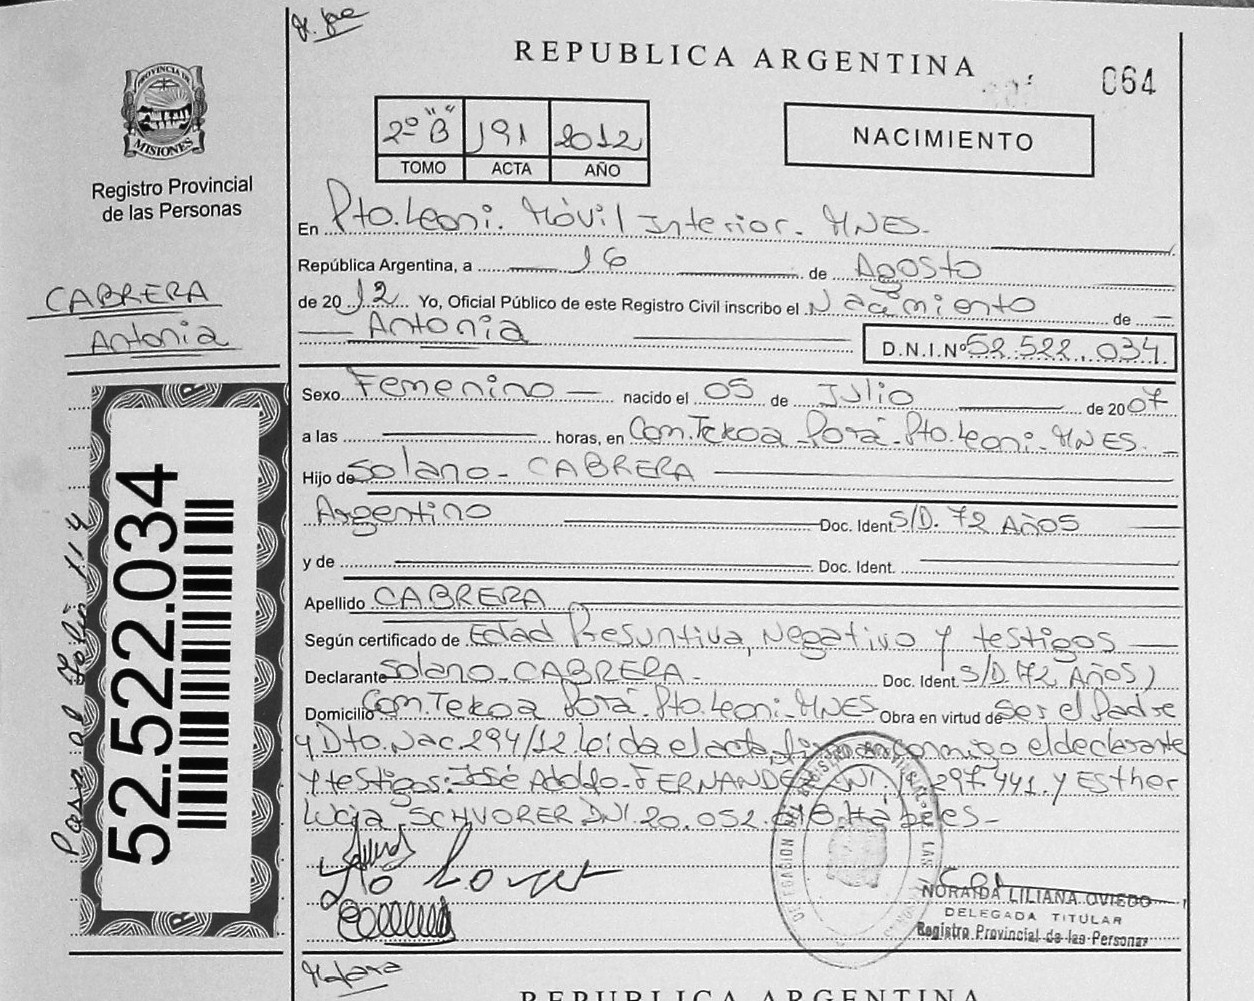 REPUBLICA ARGENTINA
064
PROVINCIA DE
MISIONES
Registro Provincial
de las Personas
CABRERA
Antonia
Pasa al Folio 114
52.522.034
2º "B" 191 2012
TOMO ACTA AÑO
NACIMIENTO
En Pto. Leoni. Móvil Interior. MNES.
República Argentina, a 16 de Agosto
de 2012 Yo, Oficial Público de este Registro Civil inscribo el Nacimiento de
Antonia
D.N.I.Nº 52.522.034
Sexo Femenino nacido el 05 de Julio de 2007
a las horas, en Com. Tekoa Porá. Pto. Leoni. MNES.
Hijo de Solano - CABRERA
Argentino Doc. Ident. S/D. 72 Años
y de Doc. Ident.
Apellido CABRERA
Según certificado de Edad Presuntiva, Negativo y testigos
Declarante Solano - CABRERA - Doc. Ident. S/D (72 Años)
Domicilio Com. Tekoa Porá. Pto. Leoni. MNES Obra en virtud de Ser el Padre
y Dto. Nac 294/12. Leída el acta, firman conmigo el declarante
y testigos: José Adolfo - FERNANDEZ DNI. 297.441. y Esther
Lucia SCHVORER DNI. 20.052. Hábiles -
NORAIDA LILIANA OVIEDO
DELEGADA TITULAR
Registro Provincial de las Personas
REPUBLICA ARGENTINA